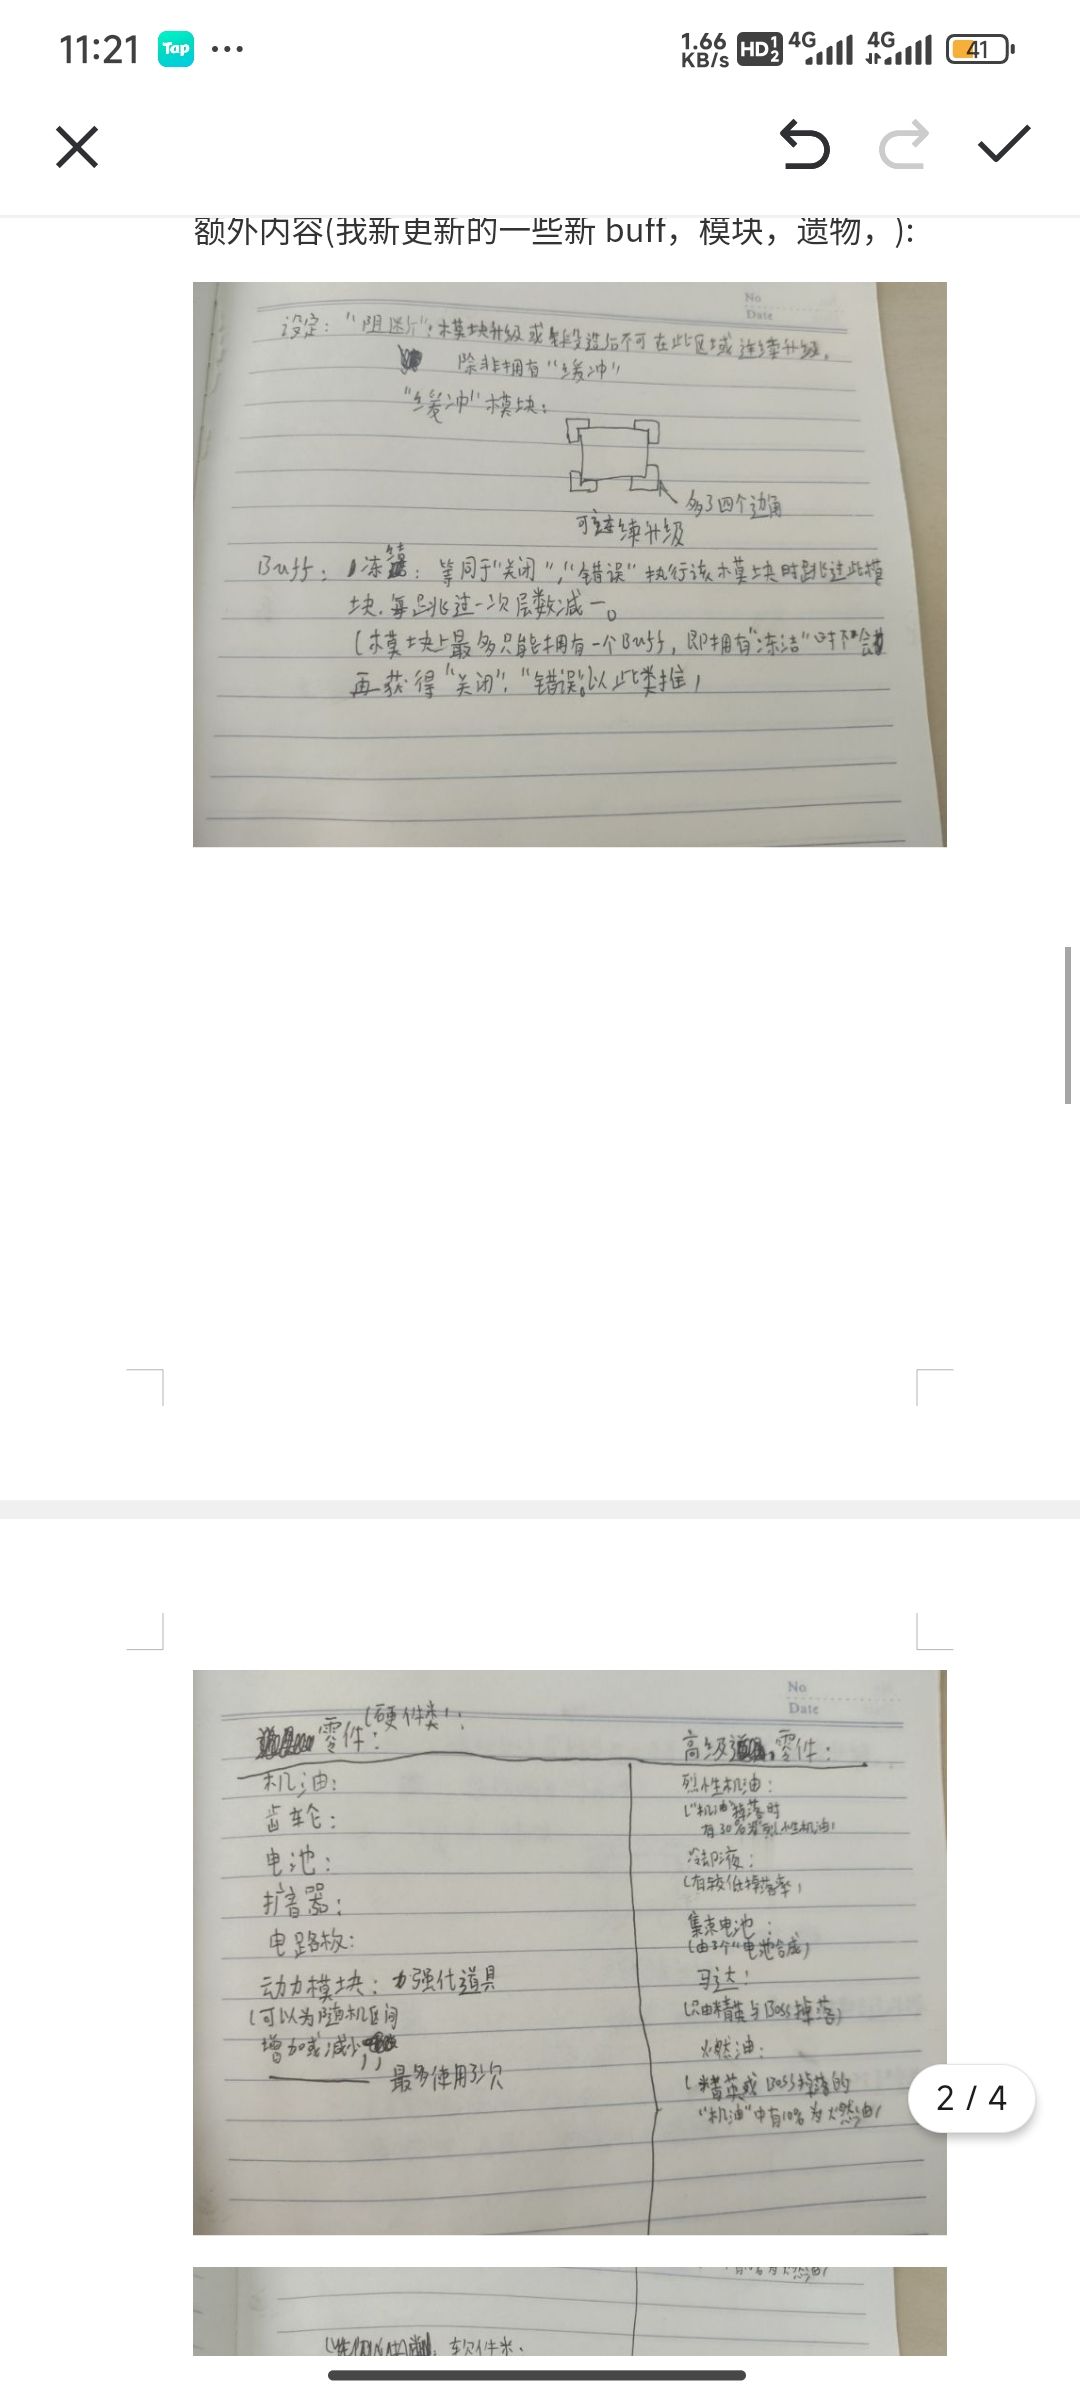 11:21 Tap ... 1.66 KB/s HD 1 2 4G 4G 41
额外内容(我新更新的一些新 buff，模块，遗物，):
No
Date
设定："阻断"：模块升级或 后不可在此区域连续升级，
除非拥有"缓冲"
"缓冲"模块：
多了四个边角
可连续升级
Buff：冻结：等同于"关闭"，"错误"执行该模块时跳过此模
块，每跳过一次层数减一。
(模块上最多只能拥有一个Buff，即拥有"冻洁"时不会
再获得"关闭"，"错误"。以此类推)
No
Date
零件(硬件类)：
高级零件：
机油：
齿轮：
电池：
扩音器：
电路板：
动力模块：力强化道具
(可以为随机区间
增加或减少
最多使用3次
烈性机油：
("机油"掉落时
有30%为烈性机油)
冷却液：
(有较低掉落率)
集束电池：
(由3个"电池合成)
马达：
(只由精英与Boss掉落)
燃油：
(精英或Boss掉落的
"机油"中有10%为燃油)
2 / 4
软件类：